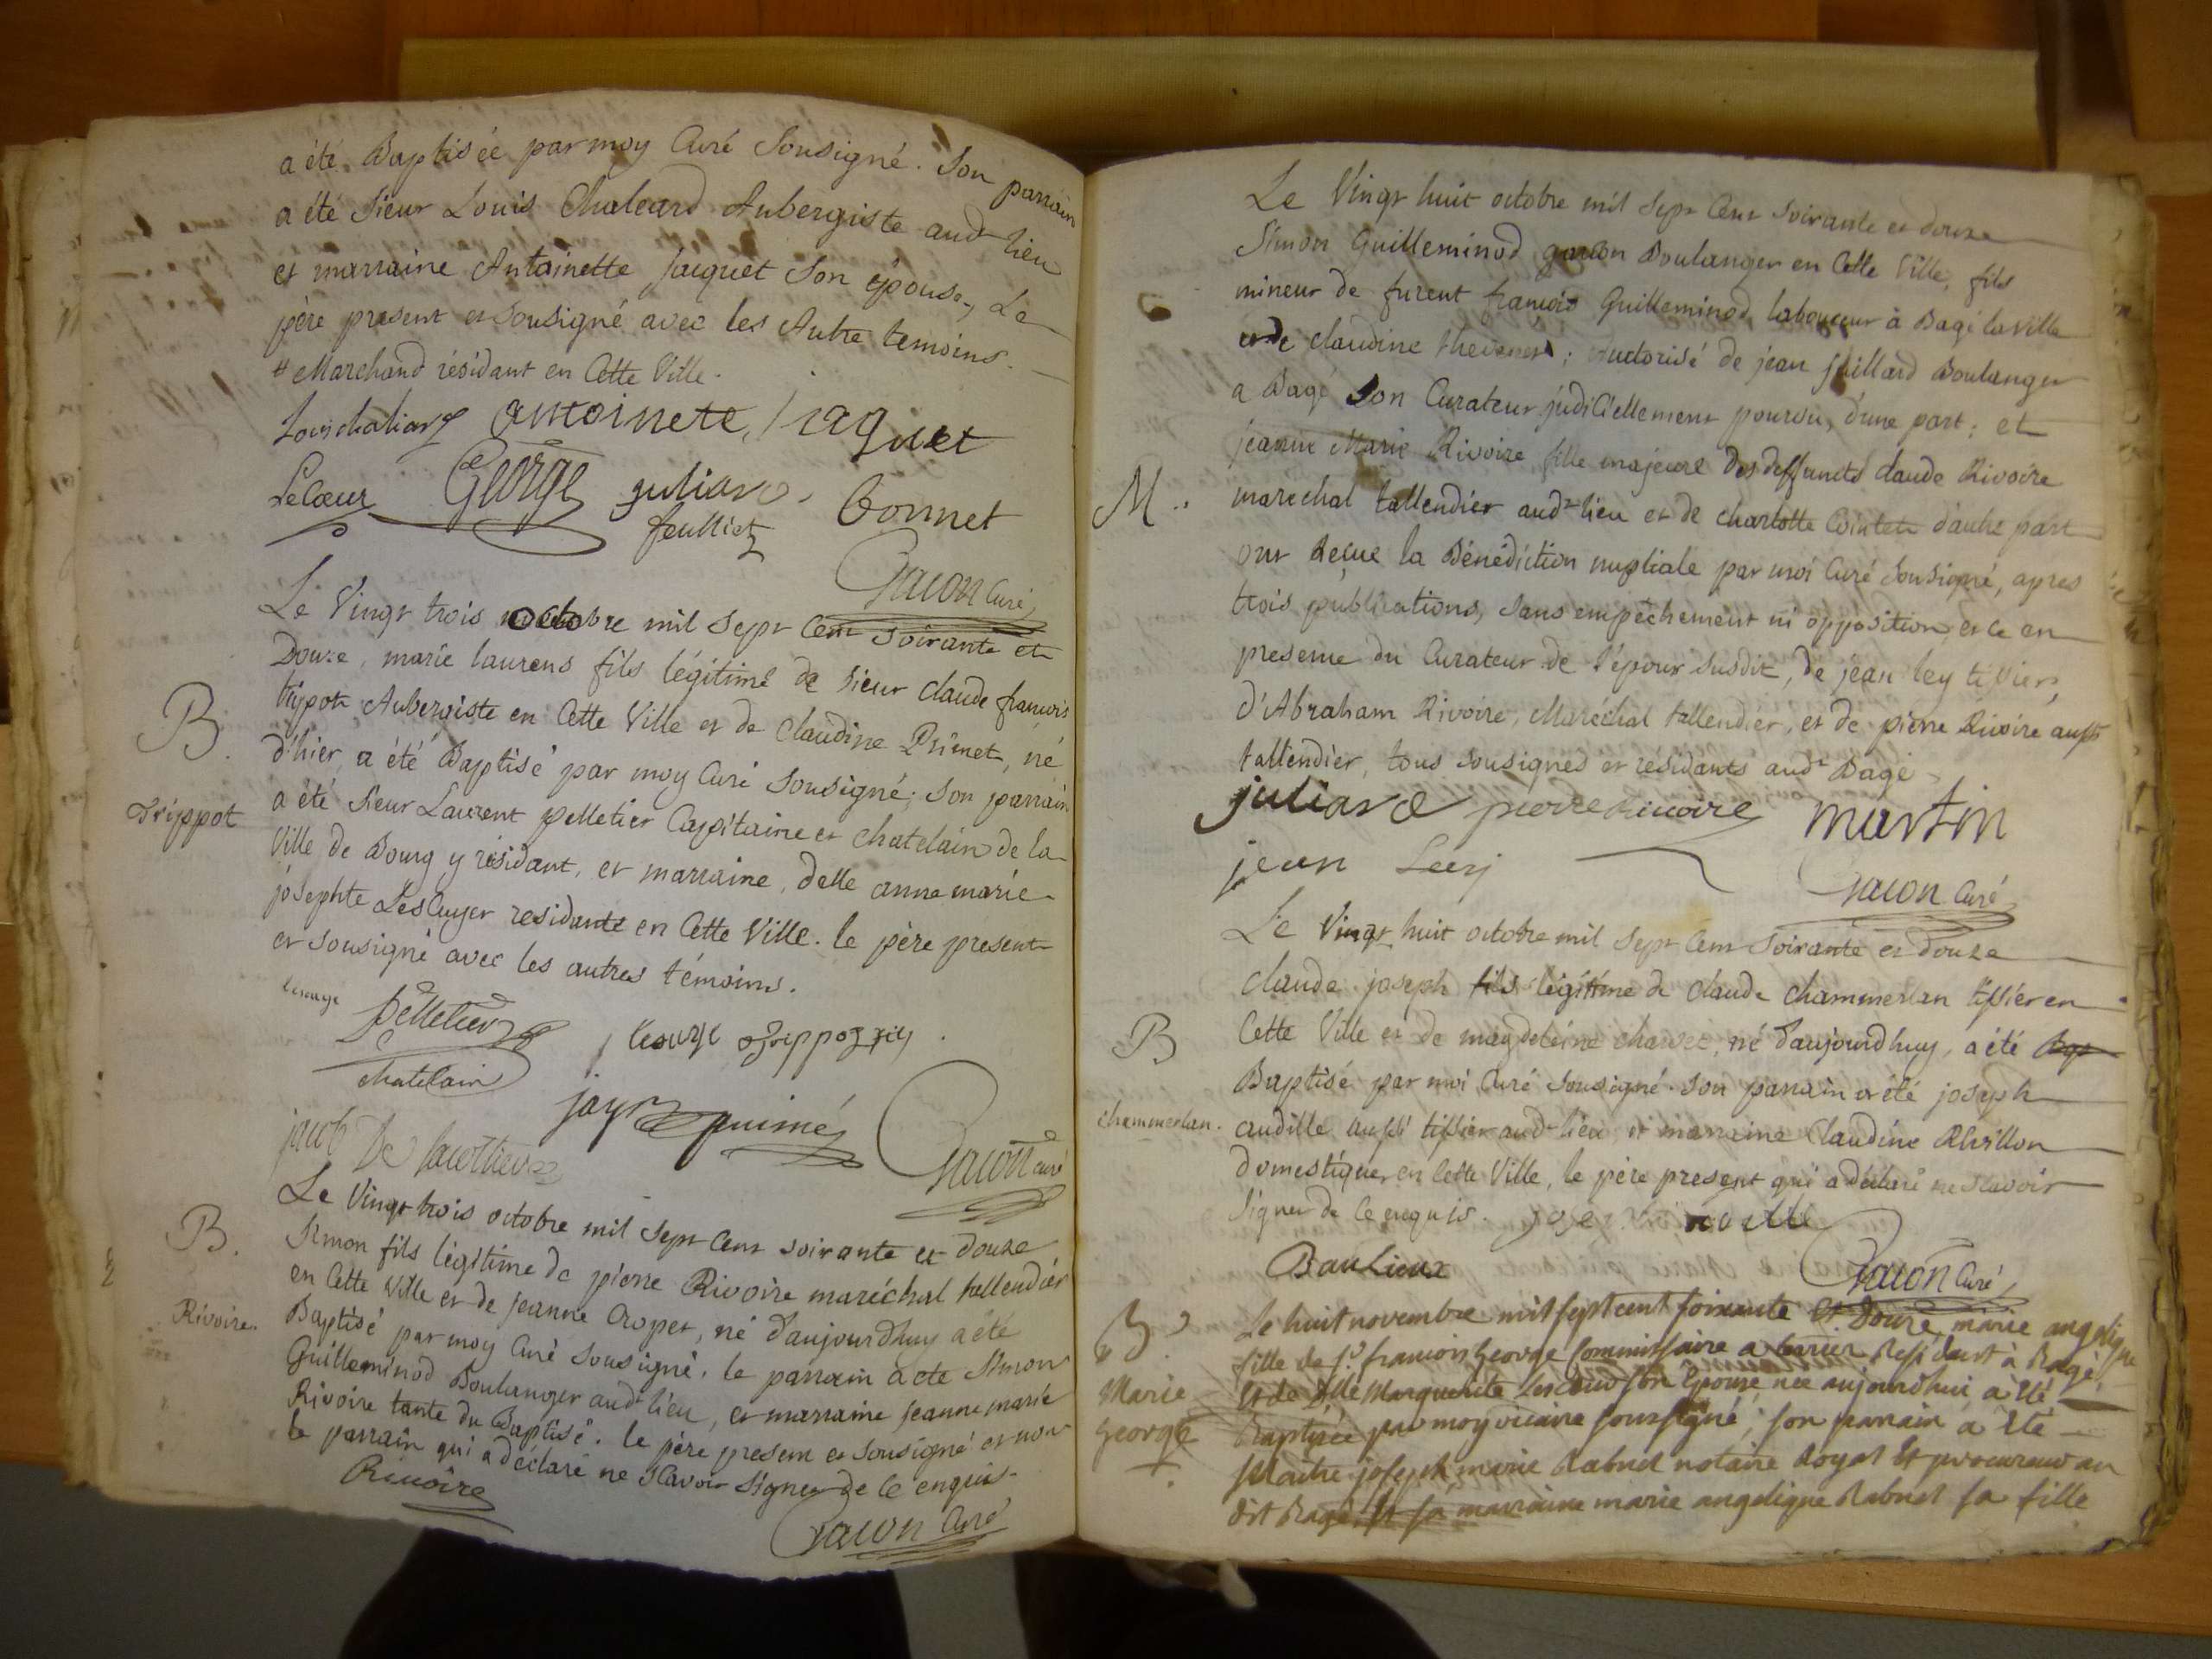 a été Baptisée par moy Curé Sousigné. Son parrain
a été Sieur Louis Chaleard Aubergiste audt lieu
et marraine Antoinette Jacquet Son épouse, Le
père present et sousigné avec les Autre temoins.
# Marchand résidant en Cette Ville.
Louis chaliard antoinete jaquet
Lecœur George juliard Bonnet
feulliet
Gacon Curé
Le Vingt trois octobre mil Sept Cent soixante et
Douze, marie laurens fils légitime de Sieur Claude francois
trippot Aubergiste en Cette Ville et de Claudine Primet, né
B.
d'hier, a été Baptisé par moy Curé Sousigné; Son parrain
a été Sieur Laurent pelletier Capitaine et Chatelain de la
Trippot
Ville de Bourg y résidant, et marraine, delle anne marie
josephte Lescuyer residante en Cette Ville. le père present
et sousigné avec les autres témoins.
Pelletier
chatelain
jayr
Gacon curé
Le Vingt trois octobre mil Sept Cent soixante et douze
B.
Simon fils légitime de pierre Rivoire maréchal tallendier
en Cette Ville et de Jeanne Cropet, né d'aujourdhuy a été
Rivoire.
Baptisé par moy Curé Sousigné. le parrain a ete Simon
Guilleminod Boulanger audt lieu, et marraine Jeanne marie
Rivoire tante du Baptisé. le père present et Sousigné et non
le parrain qui a déclaré ne Scavoir Signer de Ce enquis.
Rivoire
Gacon Curé
Le Vingt huit octobre mil Sept Cent Soixante et douze
Simon Guilleminod garcon Boulanger en Cette Ville, fils
mineur de furent francois Guilleminod laboureur à Bagé la ville
et de claudine thevenet; Auctorisé de jean juillard Boulanger
a Bagé Son Curateur judiciellement pourvu, d'une part; et
jeanne Marie Rivoire fille majeure des deffuncts claude Rivoire
M..
marechal tallendier audt lieu et de charlotte Cointet d'autre part
ont Reçue la Bénédiction nuptiale par moi Curé Sousigné, apres
trois publications, Sans empêchement ni opposition, et ce en
presence du Curateur de l'époux susdit, de jean ley tissier,
d'Abraham Rivoire, Maréchal tallendier, et de pierre Rivoire aussi
tallendier, tous sousignés et résidants audt Bagé
juliard pierre rivoire martin
jean Leey
Gacon Curé
Le Vingt huit octobre mil Sept Cent Soixante et douze
Claude joseph fils légitime de Claude chammerlan tissier en
B
Cette Ville et de magdeleine charvet, né d'aujourdhuy, a été Bap
Baptisé par moi Curé Sousigné. Son parrain a été joseph
chammerlan.
audille aussi tissier audt lieu et marraine Claudine
domestique en Cette Ville, le père present qui a déclaré ne Scavoir
Signer de Ce enquis.
Baulieux
Gacon Curé
B
Le huit novembre mil sept cent soixante et douze, marie angelique
fille de Sr francois George Commissaire a terrier Residant à Bagé,
Marie
et de Dlle Marguerite son Epouse, née aujourdhui a été
George
Baptisée par moy vicaire soussigné; son parrain a été
Maitre joseph marie Rabuel notaire Royal et procureur au
dit Bagé et sa marraine marie angelique Rabuel sa fille